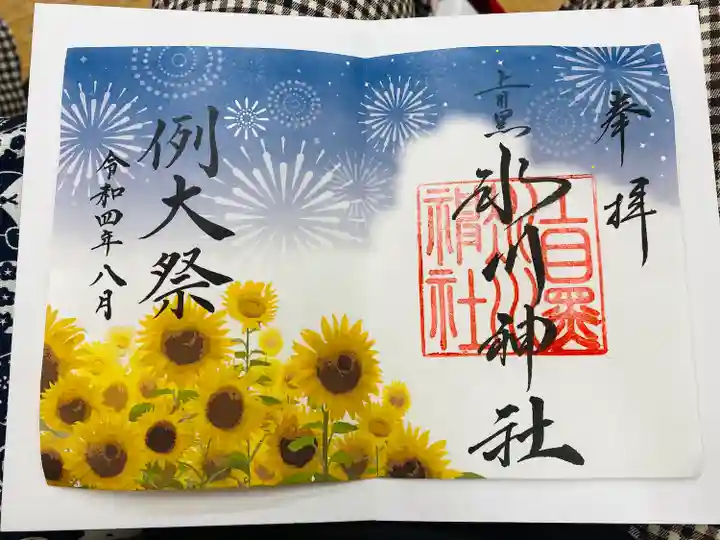 奉拝
上目黒
氷川神社
上目黒
氷川
神社
例大祭
令和四年八月